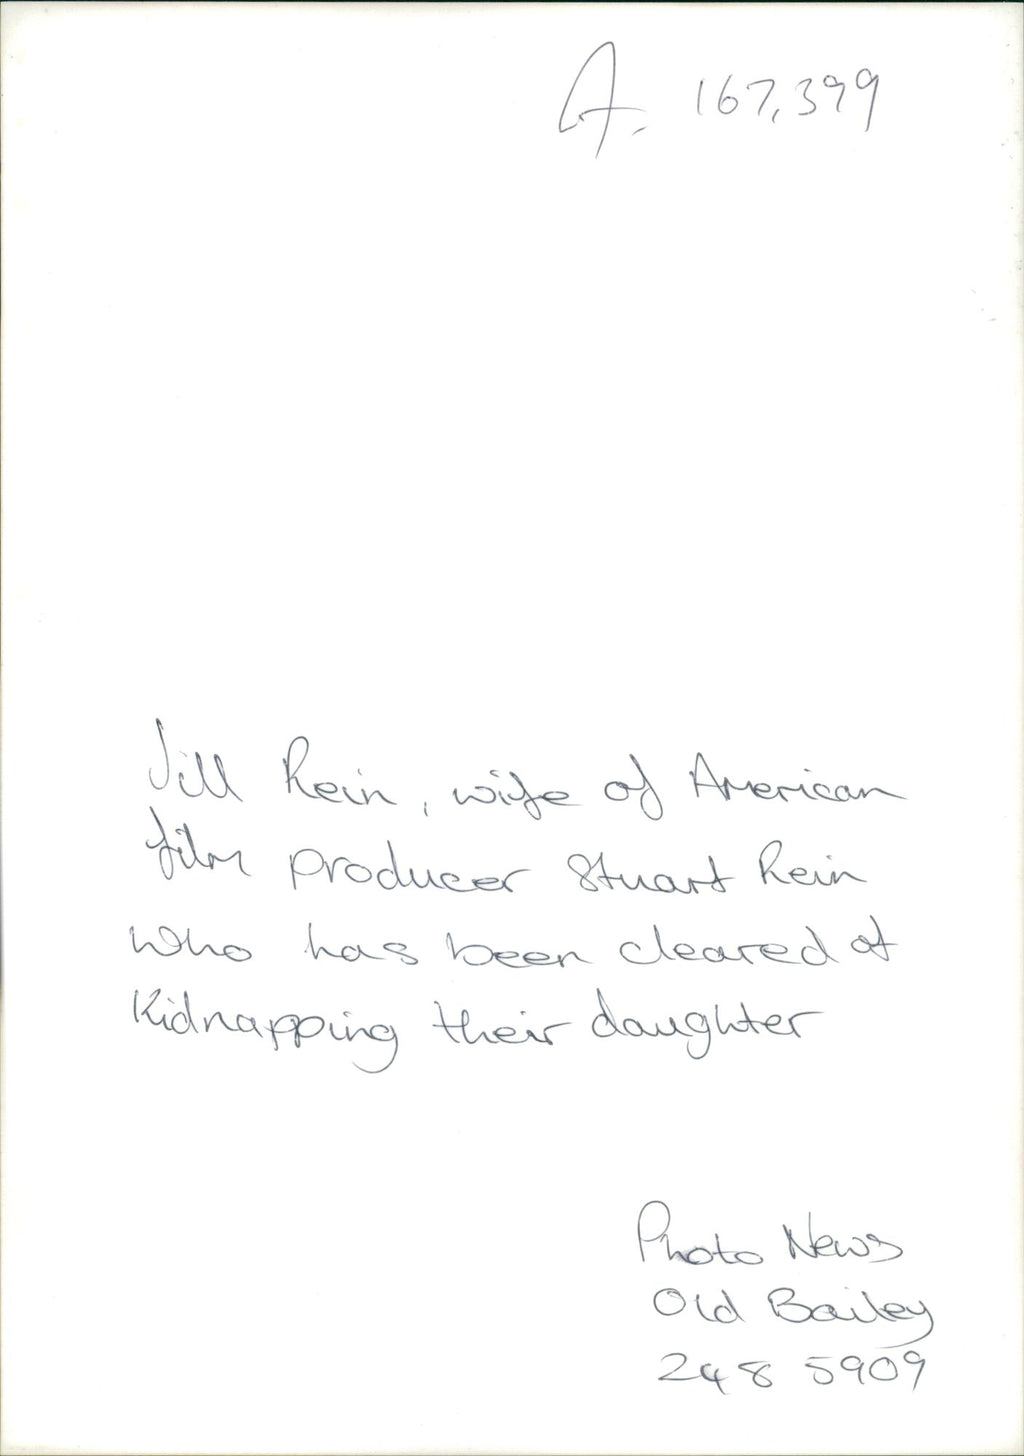 A. 167,399
Jill Rein, wife of American
film producer Stuart Rein
who has been cleared of
Kidnapping their daughter
Photo News
Old Bailey
248 5909